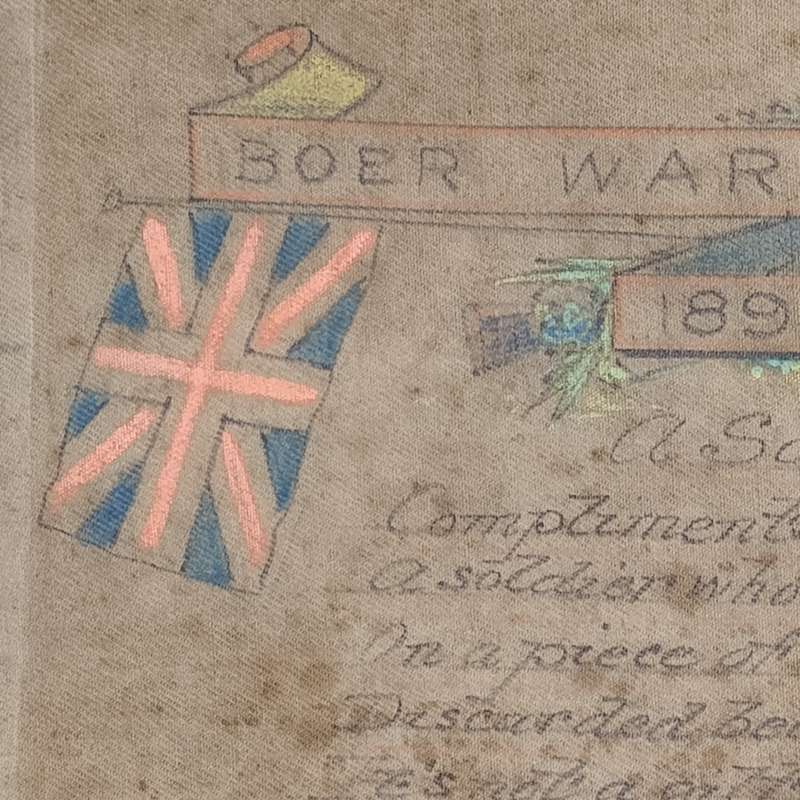 BOER WAR
189
A So
Compliments
A soldier who
In a piece of
Discarded bec
He's not a